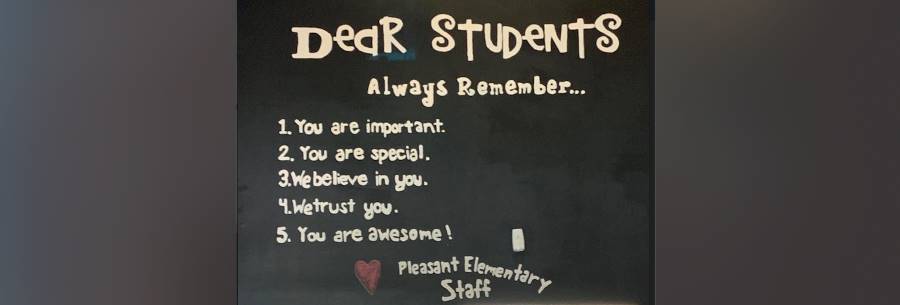 Dear Students
Always Remember...
1. You are important.
2. You are special.
3. We believe in you.
4. We trust you.
5. You are awesome!
Pleasant Elementary
Staff